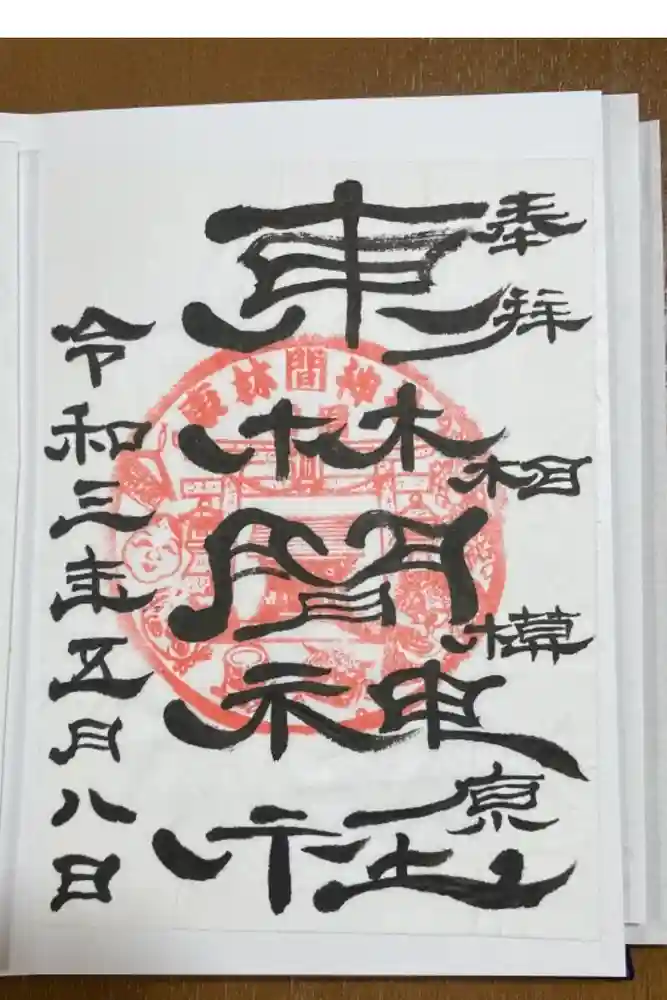 奉拝
相模原
東林間神社
東林間神社
令和三年五月八日